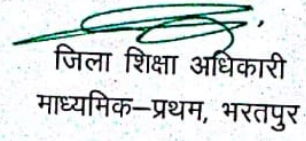 जिला शिक्षा अधिकारी
माध्यमिक–प्रथम, भरतपुर